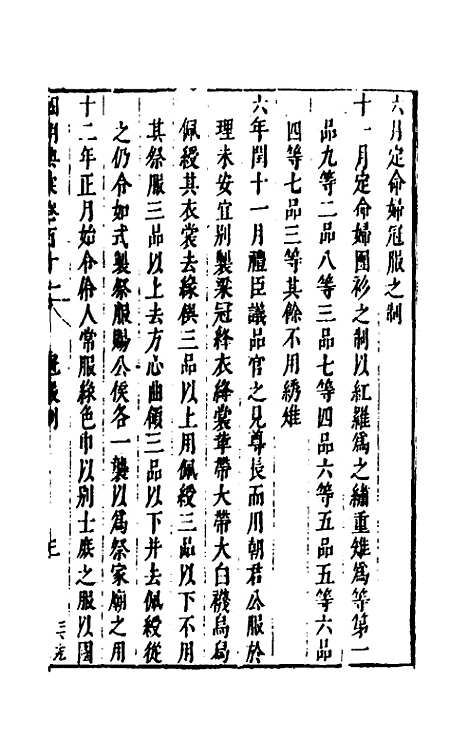 六月定命婦冠服之制
十一月定命婦團衫之制以紅羅爲之繡重雉爲等第一
品九等二品八等三品七等四品六等五品五等六品
四等七品三等其餘不用綉雉
六年閏十一月禮臣議品官之兄尊長而用朝君公服於
理未安宜别製梁冠絳衣絳裳革帶大帶大白襪烏舄
佩綬其衣裳去緣𧝒三品以上用佩綬三品以下不用
其祭服三品以上去方心曲領三品以下并去佩綬從
之仍令如式製祭服賜公侯各一襲以爲祭家廟之用
十二年正月始令伶人常服綠色巾以别士庶之服以國